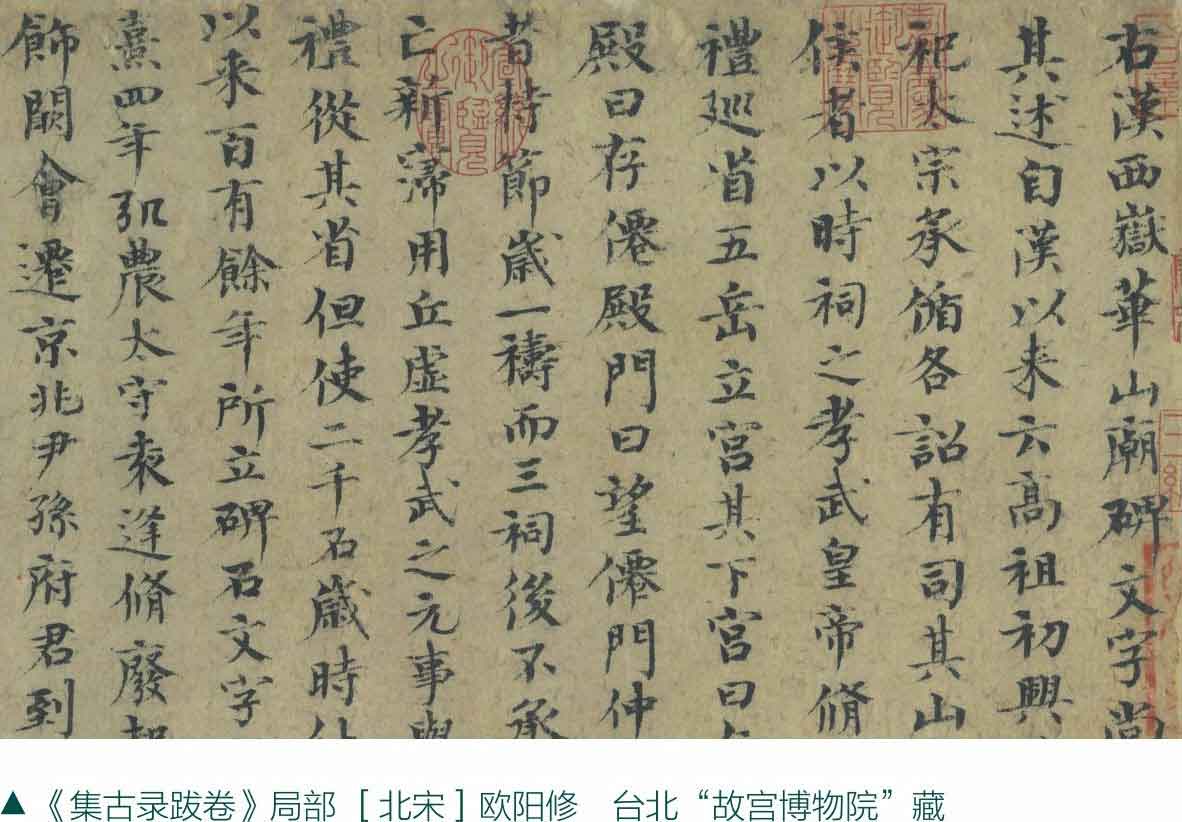 右漢西嶽華山廟碑文字尚
其述自漢以来云高祖初興
祀太宗承循各詔有司其山
侯者以時祠之孝武皇帝脩
禮廵省五岳立宫其下宫曰
殿曰存僊殿門曰望僊門仲
者持節歳一禱而三祠後不承
亡新寖用丘虚孝武之元事舉
禮從其省但使二千石歳時
以来百有餘年所立碑石文字
熹四年弘農太守袁逢脩廢起
飾闕會遷京兆尹孫府君到
▲《集古录跋卷》局部 [北宋] 欧阳修　台北“故宫博物院”藏